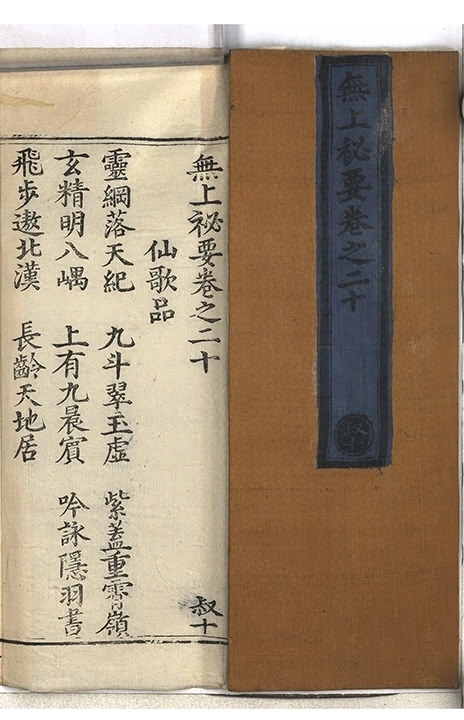 無上秘要卷之二十
叔十
無上祕要卷之二十 叔十
仙歌品
靈綱落天紀 九斗翠玉虛 紫蓋重霄嶺
玄精明八嵎 上有九晨賓 吟詠隱羽書
飛步遨北漢 長齡天地居